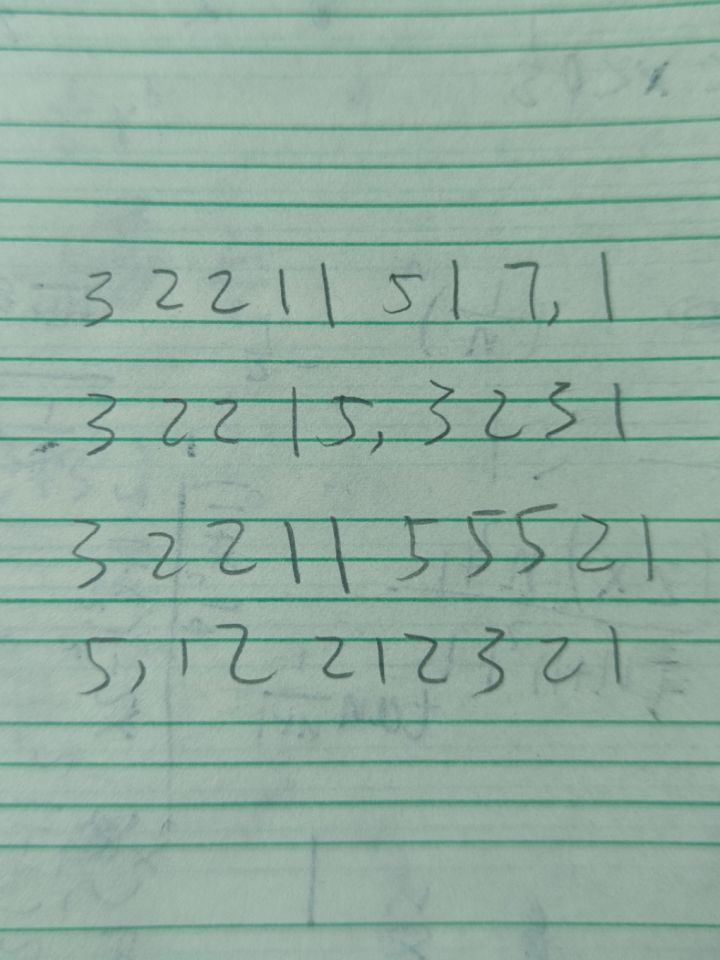 3 2 2 1 1 5 1 7, 1
3 2 2 1 5, 3 2 3 1
3 2 2 1 1 5 5 5 2 1
5, 1 2 2 1 2 3 2 1